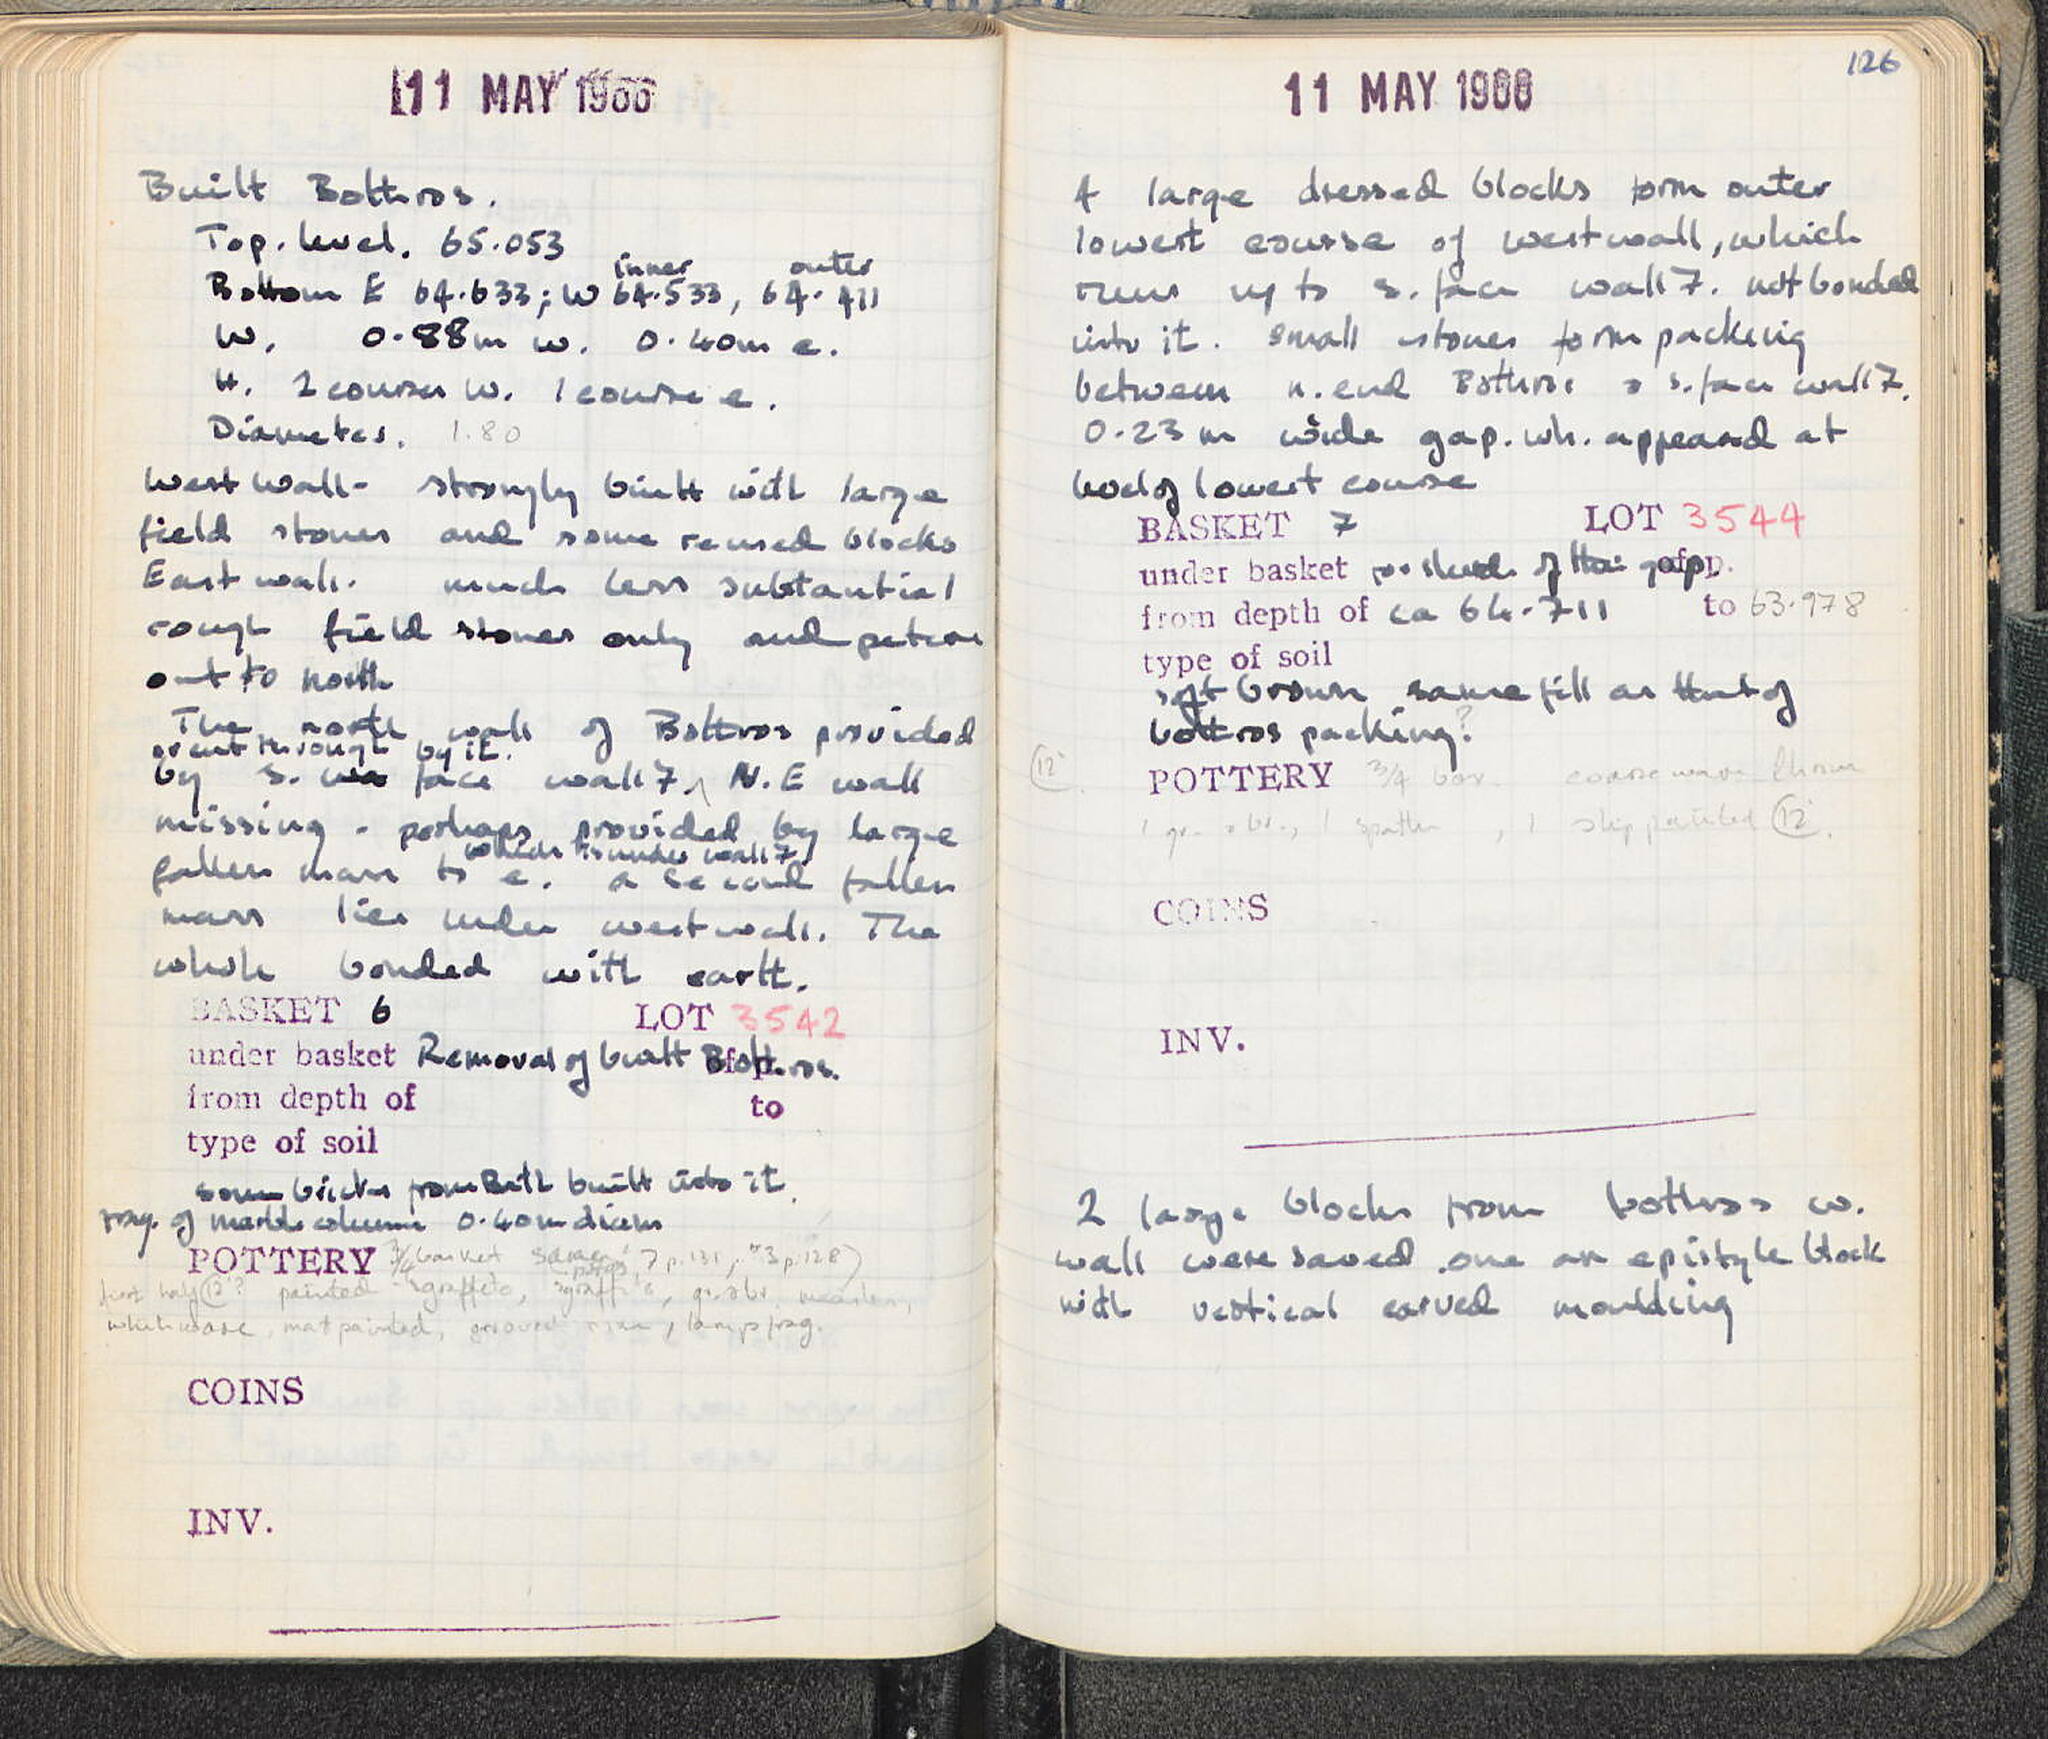 11 MAY 1966
Built Bothros.
Top. level. 65.053
inner outer
Bottom E 64.633; W 64.533, 64.411
W. 0.88m w. 0.40m e.
H. 2 courses W. 1 course e.
Diameter. 1.80
West wall- strongly built with large
field stones and some reused blocks
East wall. much less substantial
rough field stones only and peters
out to north
The north wall of Bothros provided
or cut through by it.
by s. face wall 7, N.E wall
missing - perhaps provided by large
which is under wall 7
fallen mass to e. a second fallen
mass lies under west wall. The
whole bonded with earth.
BASKET 6 LOT 3542
under basket Removal of built Bothros. of p.
from depth of to
type of soil
some bricks from Bath built into it.
frag. of marble column 0.40m diam
POTTERY 3/4 basket same 7 p.131, 3 p.128)
first half 12? painted sgraffito, sgraffito,
white ware, mat painted, grooved, lamp frag.
COINS
INV.
126
11 MAY 1966
4 large dressed blocks form outer
lowest course of west wall, which
runs up to s. face wall 7. not bonded
into it. small stones form packing
between n. end Bothros & s. face wall 7.
0.23m wide gap. wh. appeared at
level of lowest course
BASKET 7 LOT 3544
under basket of this gap of p.
from depth of ca 64.711 to 63.978
type of soil
soft brown same fill as that of
bothros packing?
12
POTTERY 3/4 box. coarse ware
1 spatter, 1 slip painted 12.
COINS
INV.
2 large blocks from bothros w.
wall were saved. one an epistyle block
with vertical carved moulding